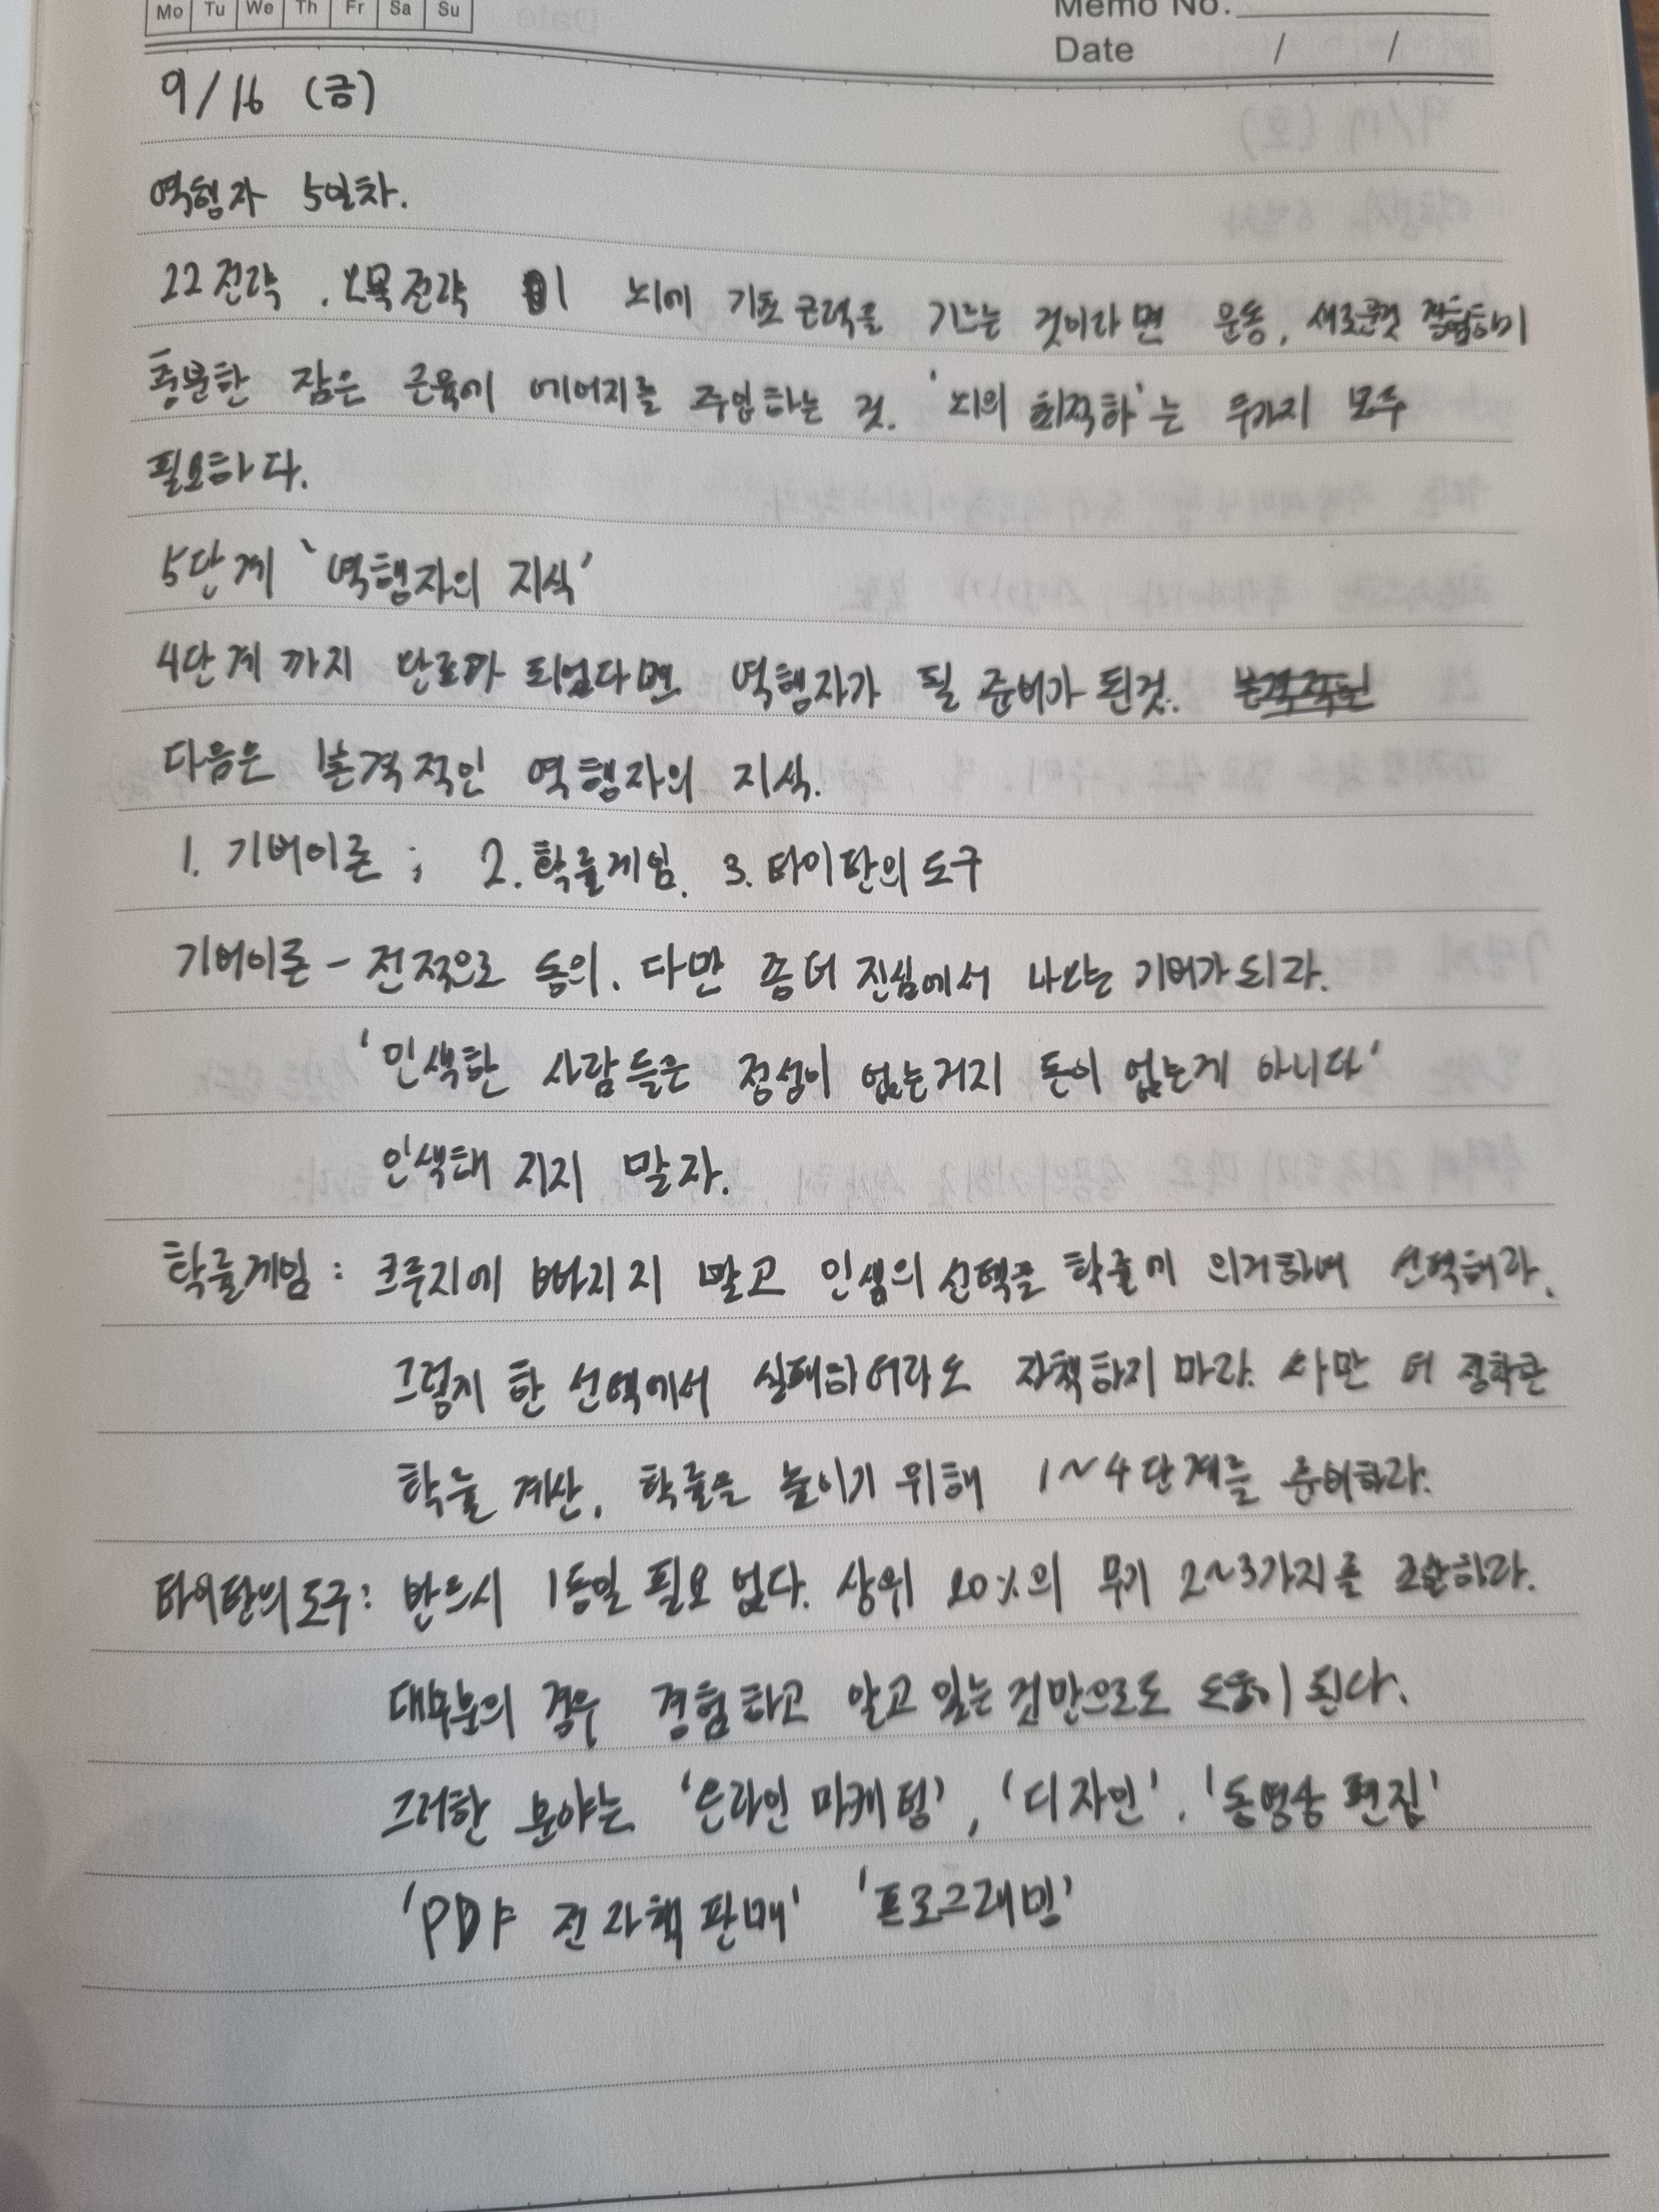 Mo Tu We Th Fr Sa Su
Memo No.
Date / /
9/16 (금)
역행자 5일차.
22전략, 오목전략 이 뇌에 기초 근력을 기르는 것이라면 운동, 새로운것
충분한 잠은 근육에 에너지를 주입하는 것. '뇌의 최적화'는 두가지 모두
필요하다.
5단계 '역행자의 지식'
4단계 까지 완료가 되었다면 역행자가 될 준비가 된것.
다음은 본격적인 역행자의 지식.
1. 기버이론 ; 2. 확률게임. 3. 타이탄의 도구
기버이론 - 전적으로 동의. 다만 좀 더 진심에서 나오는 기버가 되라.
'인색한 사람들은 정성이 없는거지 돈이 없는게 아니다'
인색해 지지 말자.
확률게임 : 클루지에 빠지지 말고 인생의 선택을 확률에 의거하여 선택해라.
그렇게 한 선택에서 실패하더라도 자책하지 마라. 다만 더 정확한
확률 계산, 확률을 높이기 위해 1~4단계를 준비하라.
타이탄의 도구 : 반드시 1등일 필요 없다. 상위 20%의 무기 2~3가지를 조합하라.
대부분의 경우 경험하고 알고 있는 것만으로도 도움이 된다.
그러한 분야는 '온라인 마케팅', '디자인', '동영상 편집'
'PDF 전자책 판매' '프로그래밍'